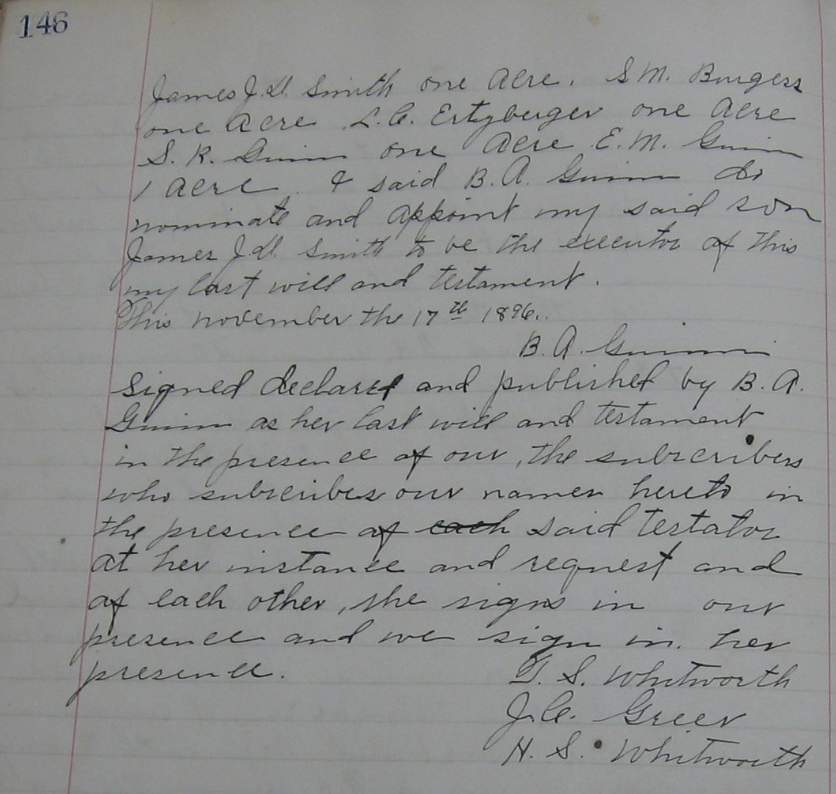 146
James J. W. Smith one Acre. S M. Burgess
one Acre L. C. Ertzberger one Acre
S. R. Guinn one Acre E. M. Guinn
1 Acre. I said B. A. Guinn do
nominate and appoint my said son
James J W Smith to be the executor of this
my last will and testament.
This november the 17th 1896.
B. A. Guinn
Signed declared and published by B. A.
Guinn as her last will and testament
in the presence of our, the subscribers
who subscribes our names hereto in
the presence of each said testator
at her instance and request and
of each other, she signs in our
presence and we sign in her
presence.
T. S. Whitworth
J. C. Greer
H. S. Whitworth